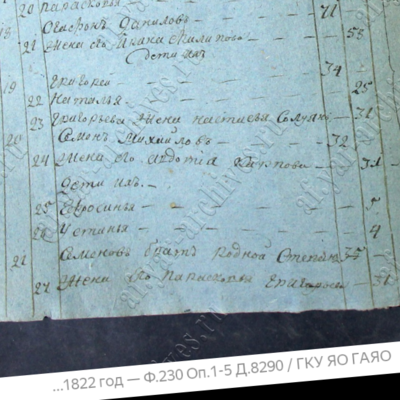 20 Парасковья
18 Агафонъ Даниловъ — 71
21 Жена ево Ирина Филипова — 53
Дѣти ихъ
19 Григорей — 34
22 Наталья — 25
23 Григорьева Жена Настасья — 31
20 Семенъ Михайловъ — 32
24 Жена ево Авдотья Карпова — 31
Дѣти ихъ —
25 Ефросинья — 5
26 Устинья — 4
21 Семеновъ братъ родной Степанъ
27 Жена ево Парасковья Григорьева — 31
...1822 год — Ф.230 Оп.1-5 Д.8290 / ГКУ ЯО ГАЯО